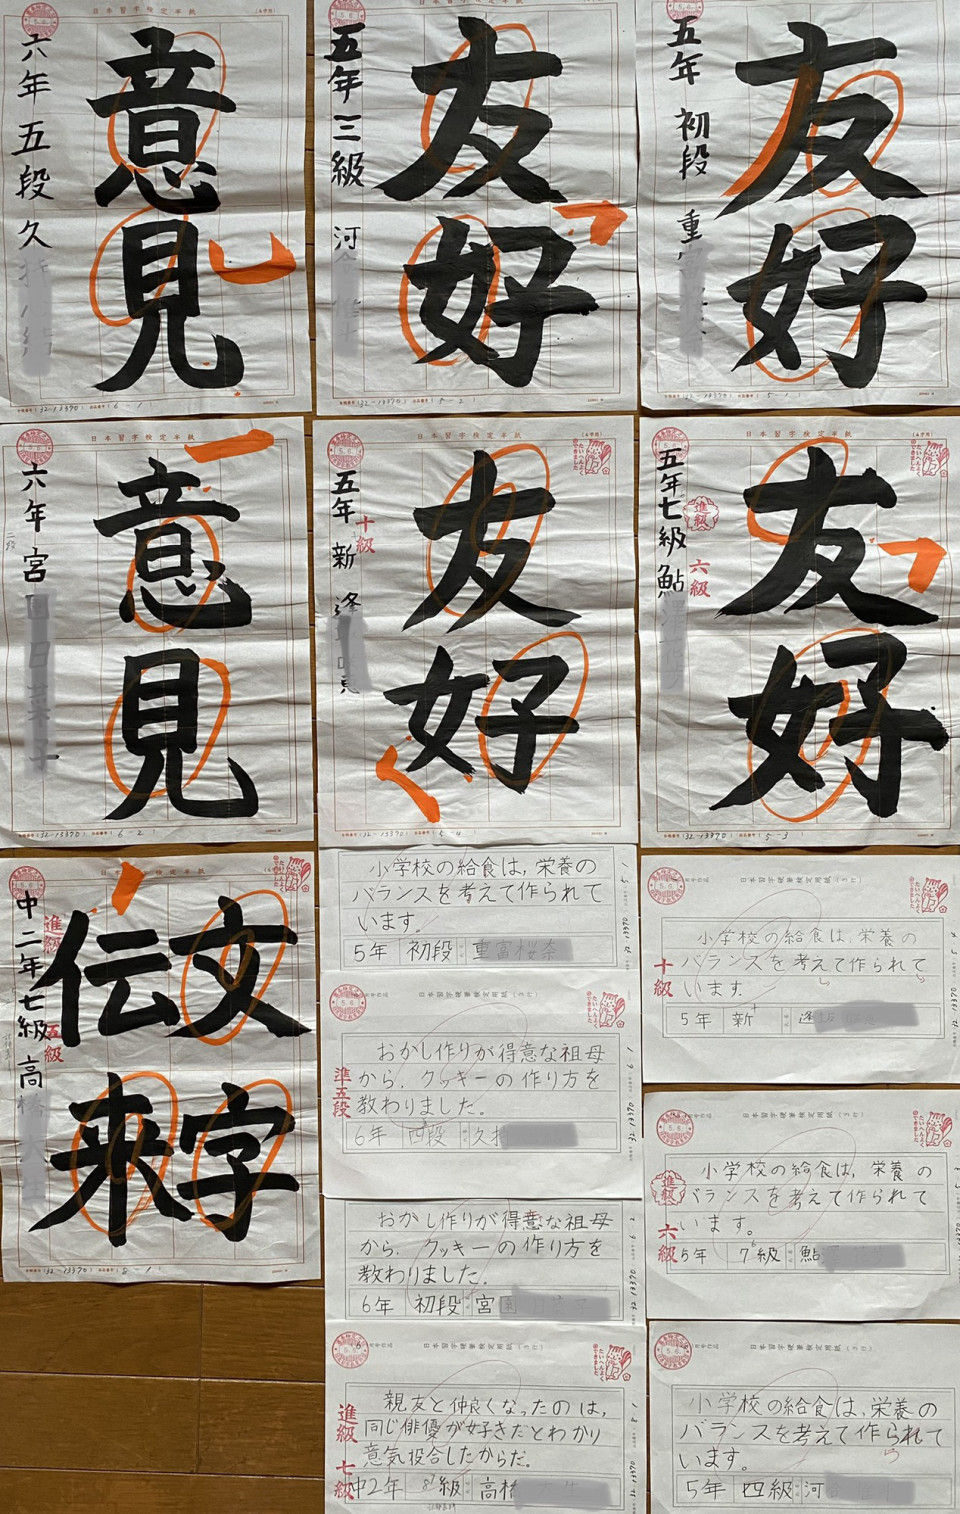 意見
六年 五段 久
友好
五年 三級 河
友好
五年 初段 重
日本習字検定半紙
意見
六年 宮
日本習字検定半紙
友好
五年 新
十級
たいへんよくできました
日本習字検定半紙
友好
五年 七級 鮎
進級 六級
たいへんよくできました
文字
伝来
中二年 七級 高橋
進級 五級
たいへんよくできました
小学校の給食は,栄養の
バランスを考えて作られて
います.
5年 初段 重富桜奈
おかし作りが得意な祖母
から,クッキーの作り方を
教わりました.
6年 四段 久
準五段
たいへんよくできました
おかし作りが得意な祖母
から,クッキーの作り方を
教わりました.
6年 初段 宮
親友と仲良くなったのは,
同じ俳優が好きだとわかり
意気投合したからだ.
中2年 級 高橋
進級 七級
たいへんよくできました
日本習字硬筆検定用紙(3行)
小学校の給食は,栄養の
バランスを考えて作られて
います.
5年 新
十級
日本習字硬筆検定用紙(3行)
小学校の給食は,栄養の
バランスを考えて作られて
います。
5年 7級 鮎
進級 六級
たいへんよくできました
日本習字硬筆検定用紙(3行)
小学校の給食は,栄養の
バランスを考えて作られて
います。
5年 四級 河